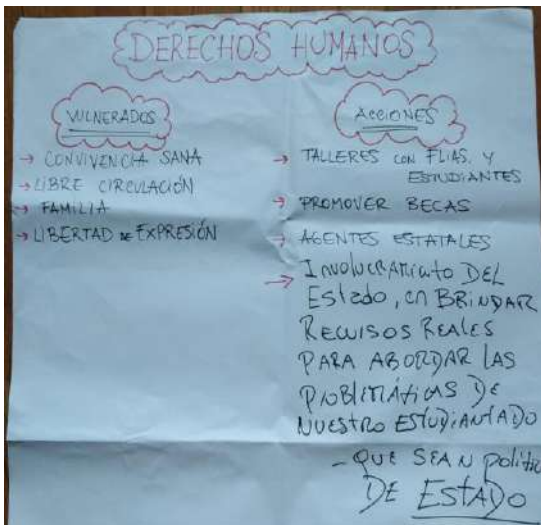 DERECHOS HUMANOS
VULNERADOS
→ CONVIVENCIA SANA
→ LIBRE CIRCULACIÓN
→ FAMILIA
→ LIBERTAD DE EXPRESIÓN
ACCIONES
→ TALLERES CON FLIAS. Y
ESTUDIANTES
→ PROMOVER BECAS
→ AGENTES ESTATALES
→ Involucramiento DEL
Estado, en BRINDAR
RECURSOS REALES
PARA ABORDAR LAS
PROBLEMÁTICAS DE
NUESTRO ESTUDIANTADO
- QUE SEAN polític
DE ESTADO